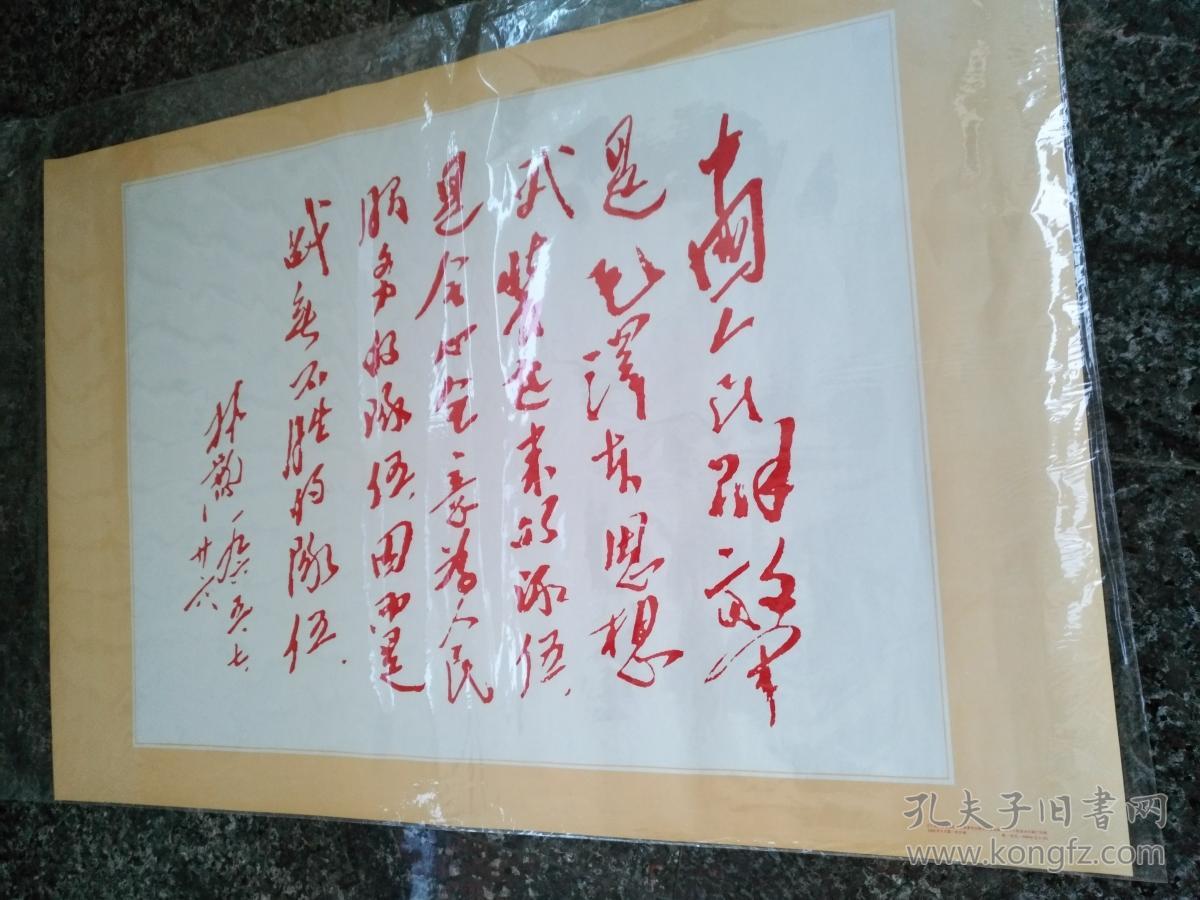 中国人民解放军
是毛泽东思想
武装起来的队伍,
是全心全意为人民
服务的队伍,因而是
战无不胜的队伍.
林彪 一九六五、七、
廿六
孔夫子旧书网
www.kongfz.com